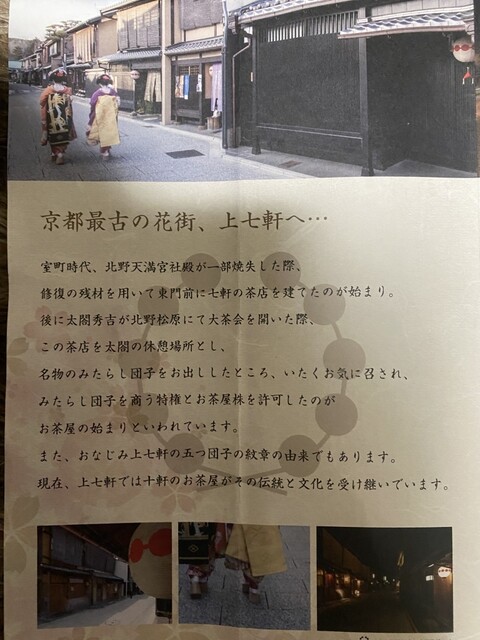 京都最古の花街、上七軒へ…
室町時代、北野天満宮社殿が一部焼失した際、
修復の残材を用いて東門前に七軒の茶店を建てたのが始まり。
後に太閤秀吉が北野松原にて大茶会を開いた際、
この茶店を太閤の休憩場所とし、
名物のみたらし団子をお出ししたところ、いたくお気に召され、
みたらし団子を商う特権とお茶屋株を許可したのが
お茶屋の始まりといわれています。
また、おなじみ上七軒の五つ団子の紋章の由来でもあります。
現在、上七軒では十軒のお茶屋がその伝統と文化を受け継いでいます。